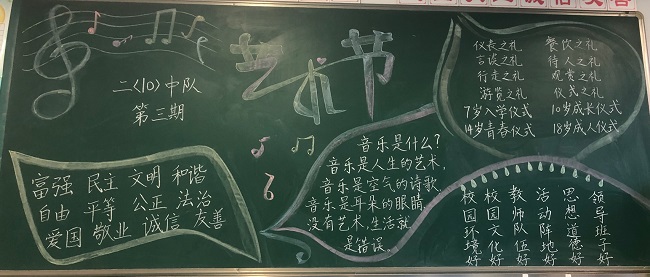 艺术节
二〈10〉中队
第三期
富强 民主 文明 和谐
自由 平等 公正 法治
爱国 敬业 诚信 友善
音乐是什么?
音乐是人生的艺术,
音乐是空气的诗歌,
音乐是耳朵的眼睛,
没有艺术,生活就
是错误。
仪表之礼 餐饮之礼
言谈之礼 待人之礼
行走之礼 观赏之礼
游览之礼 仪式之礼
7岁入学仪式 10岁成长仪式
14岁青春仪式 18岁成人仪式
校园环境好
校园文化好
教师队伍好
活动阵地好
思想道德好
领导班子好